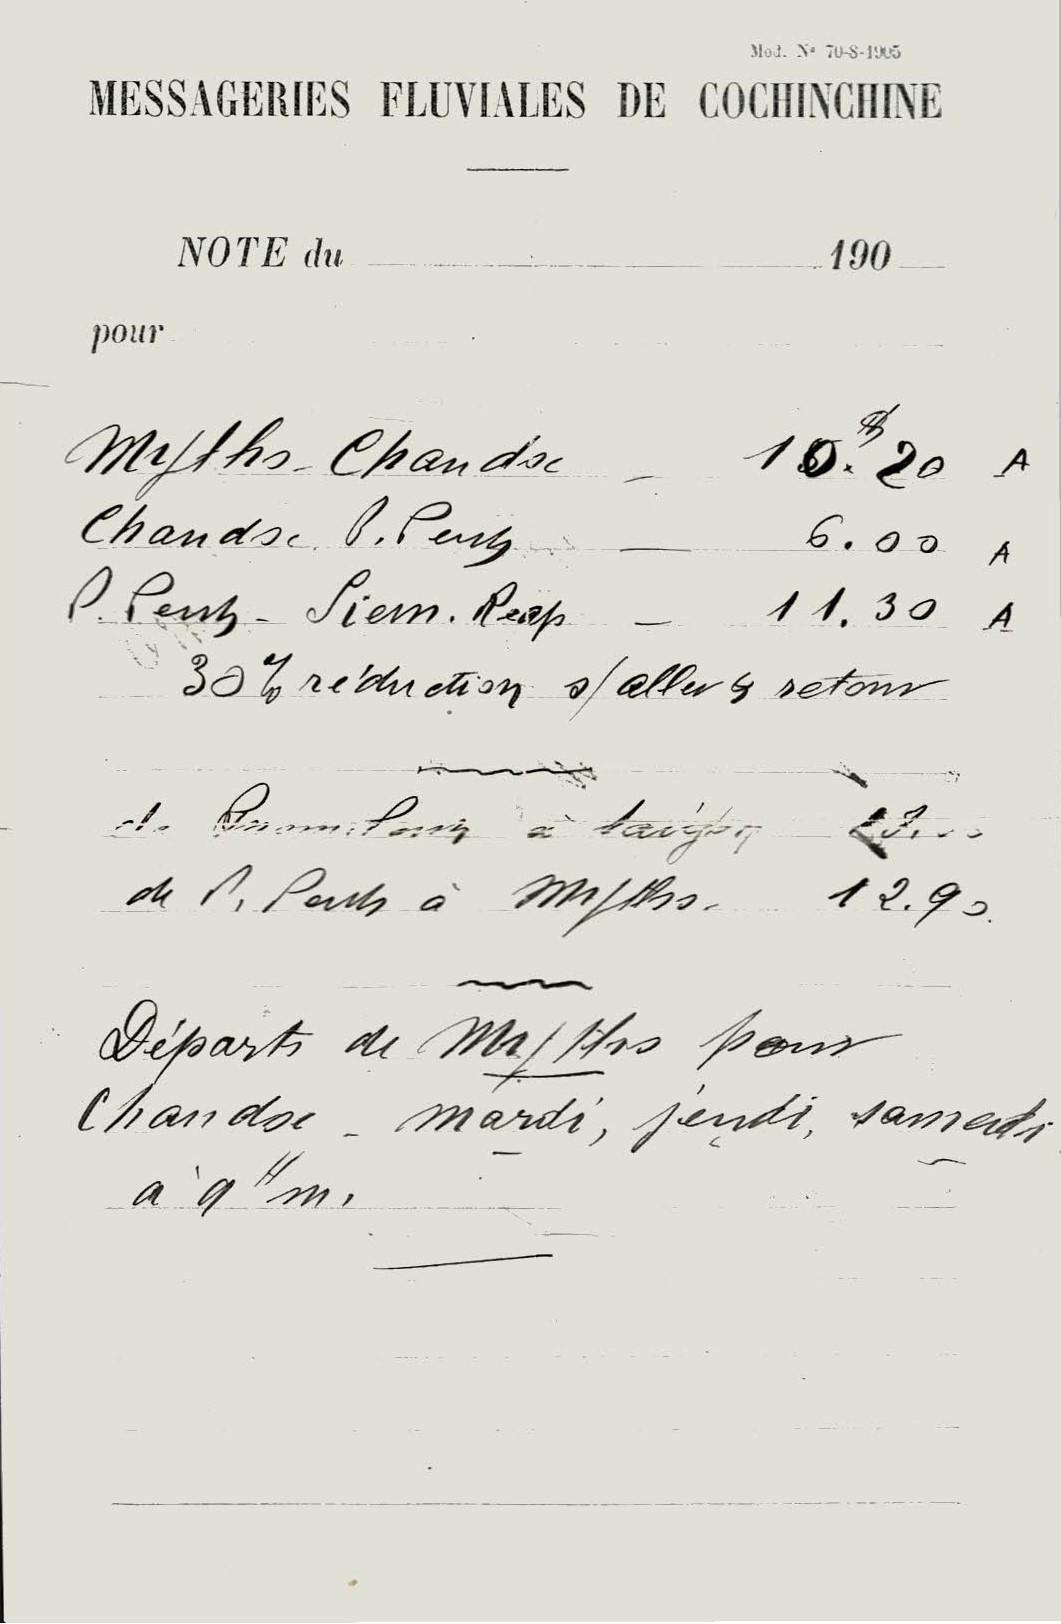 Mod. Nº 70-8-1905
MESSAGERIES FLUVIALES DE COCHINCHINE
NOTE du 190
pour
Mytho - Chaudoc - 10.$20 A
Chaudoc. P. Penh — 6.00 A
P. Penh - Siem. Reap - 11.30 A
30% réduction s/ aller & retour
de Pnom. Penh à Saïgon
de P. Penh à Mytho. 12.90.
Départs de Mytho pour
Chaudoc - mardi, jeudi, samedi
à 9 H m.